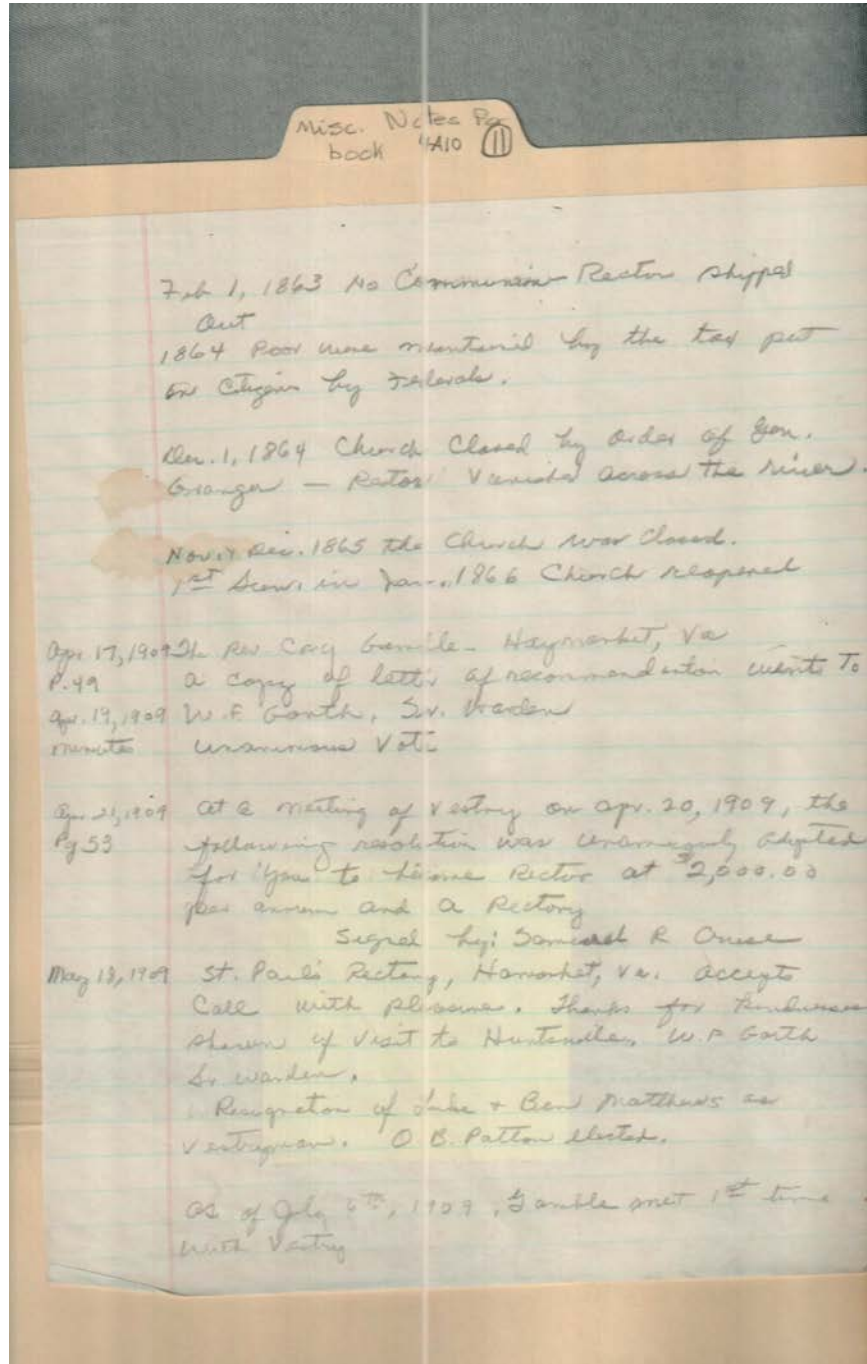 Misc. Notes Pg
book 4A10 11
Feb 1, 1863 No Communion Rector shipped
Out
1864 Poor were mantained by the tax put
on Citizens by Federals.
Dec. 1, 1864 Church Closed by order of Gen.
Granger — Rector Vanished across the river.
Nov. & Dec. 1865 the Church was Closed.
1st in Jan., 1866 Church reopened
Apr. 17, 1909 The Rev Cary Gamble - Haymarket, Va
P. 49 a copy of letter of recommendation wents To
Apr. 19, 1909 W. F. Garth, Sr. Warden
minutes unanimous Vote
Apr 21, 1909 at a meeting of vestry on apr. 20, 1909, the
Pg 53 following resolution was unanimously adopted
for "you" to become Rector at $2,000.00
per annum and a Rectory
Signed by: Samuel R Cruse
May 18, 1909 St. Paul's Rectory, Va. accepts
Call with pleasure. Thanks for Kindness
shown of visit to Huntsville, W. F Garth
Sr Warden.
Resignation of Luke + Ben Matthews as
Vestryman. O. B. Patton elected.
as of July 6th, 1909, Gamble met 1st time
with Vestry